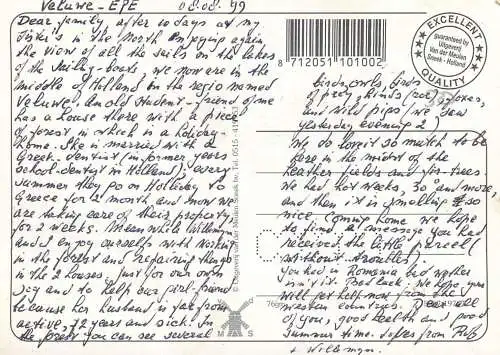 Veluwe-EPE 08.08.'99
Dear family, after 10 days at my
sister's in the North enjoying again
the view of all the sails on the lakes
of the sailing-boats, we now are in the
middle of Holland in the regio named
Veluwe. An old student-friend of me
has a house there with a piece
of forest in which is a holiday-
home. She is married with a
Greek-dentist (in former years
school-dentist in Holland); every
summer they go on Holliday to
Greece for 2 month and now we
are taking care of their property
for 2 weeks. Meanwhile Willemijn
and I enjoy ourselfs with working
in the forest and repairing things
in the 2 houses. Just for our own
joy and to help our girl-friend
because her husband is far from
active, 72 years and sick! In
the forest you can see several
birds, owls, birds
of prey, hinds, roe, foxes,
and wild pigs (we saw
yesterday evening 2)
We do love it so match to be
here in the midst of the
heather fields and fir-trees.
We had hot weeks, 30° and more
and then it is smelling so
nice. Coming home we hope
to find a message you had
received the little parcel
(without troubles).
You had in Romania bad wether
isn't it. Bad luck. We hope you
will get help now from the
western countries. Dear all
of you, good health and good
summer time. Love from Rob
+ Willemijn.
8 712051 101002
EXCELLENT
QUALITY
guaranteed by
Uitgeverij
Van der Meulen
Sneek - Holland
© Uitgeverij van der Meulen Sneek bv. Tel. 0515-41
M S